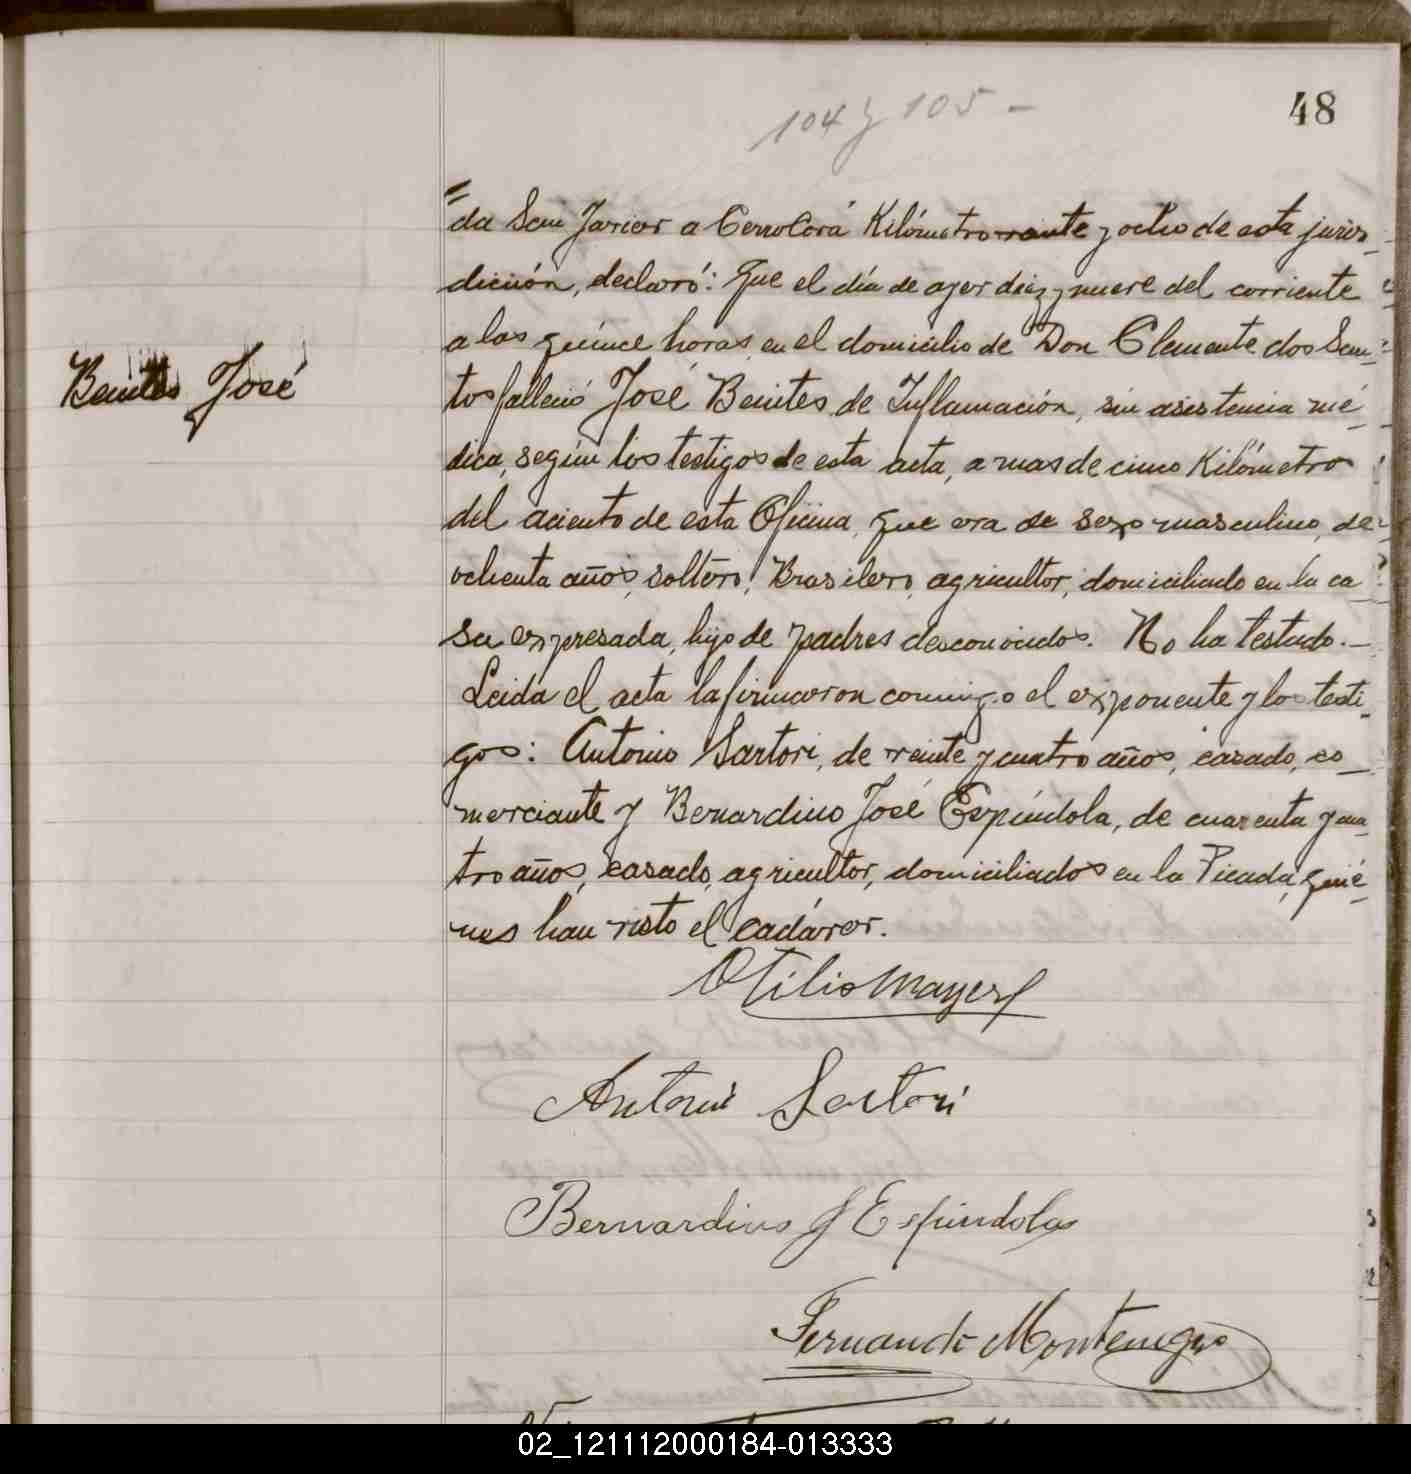 104 y 105 -
48
da San Javier a Cerro Corá Kilómetro veinte y ocho de esta juris
dicción, declaró: Que el día de ayer diez y nueve del corriente
a las quince horas, en el domicilio de Don Clemente dos San-
Benites José
tos falleció José Benites, de Inflamación, sin asistencia mé-
dica, según los testigos de esta acta, a mas de cinco Kilómetros
del aciento de esta Oficina, que era de sexo masculino, de
ochenta años, soltero, Brasilero, agricultor, domiciliado en la ca
sa expresada, hijo de padres desconocidos. No ha testado.-
Leida el acta la firmaron conmigo el exponente y los testi-
gos: Antonio Sartori, de veinte y cuatro años, casado, co-
merciante y Bernardino José Espíndola, de cuarenta y cua-
tro años, casado, agricultor, domiciliados en la Picada, quié-
nes han visto el cadáver.
Otilio Mayer
Antonio Sartori
Bernardino J Espindola
Fernando Montenegro
02_121112000184-013333